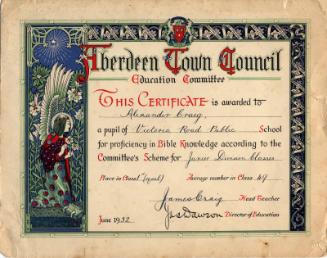 Aberdeen Town Council
Education Committee
THIS CERTIFICATE is awarded to
Alexander Craig,
a pupil of Victoria Road Public School
for proficiency in Bible Knowledge according to the
Committee's Scheme for Junior Division Classes
Place in Class 1 (equal) Average number in Class 49
James Craig Head Teacher
June 1932 Dawson Director of Education